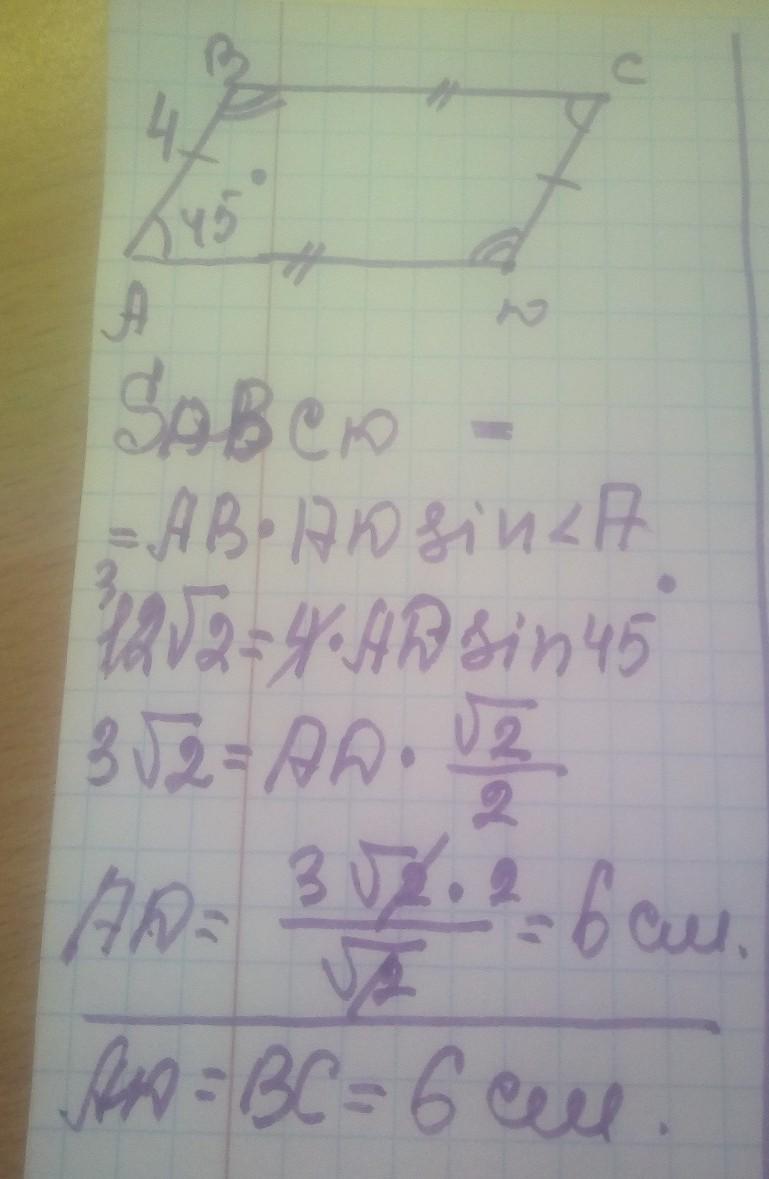 B C
4
45°
A D
SABCD =
= AB · AD sin<A
3
12√2 = 4 · AD sin 45°
3√2 = AD · √2/2
AD = 3√2 · 2/√2 = 6 см.
AD = BC = 6 см.